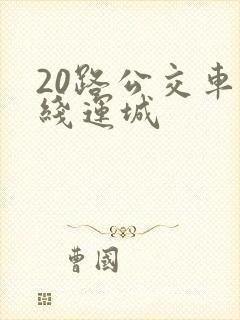 20路公交車
綫運城
曹國